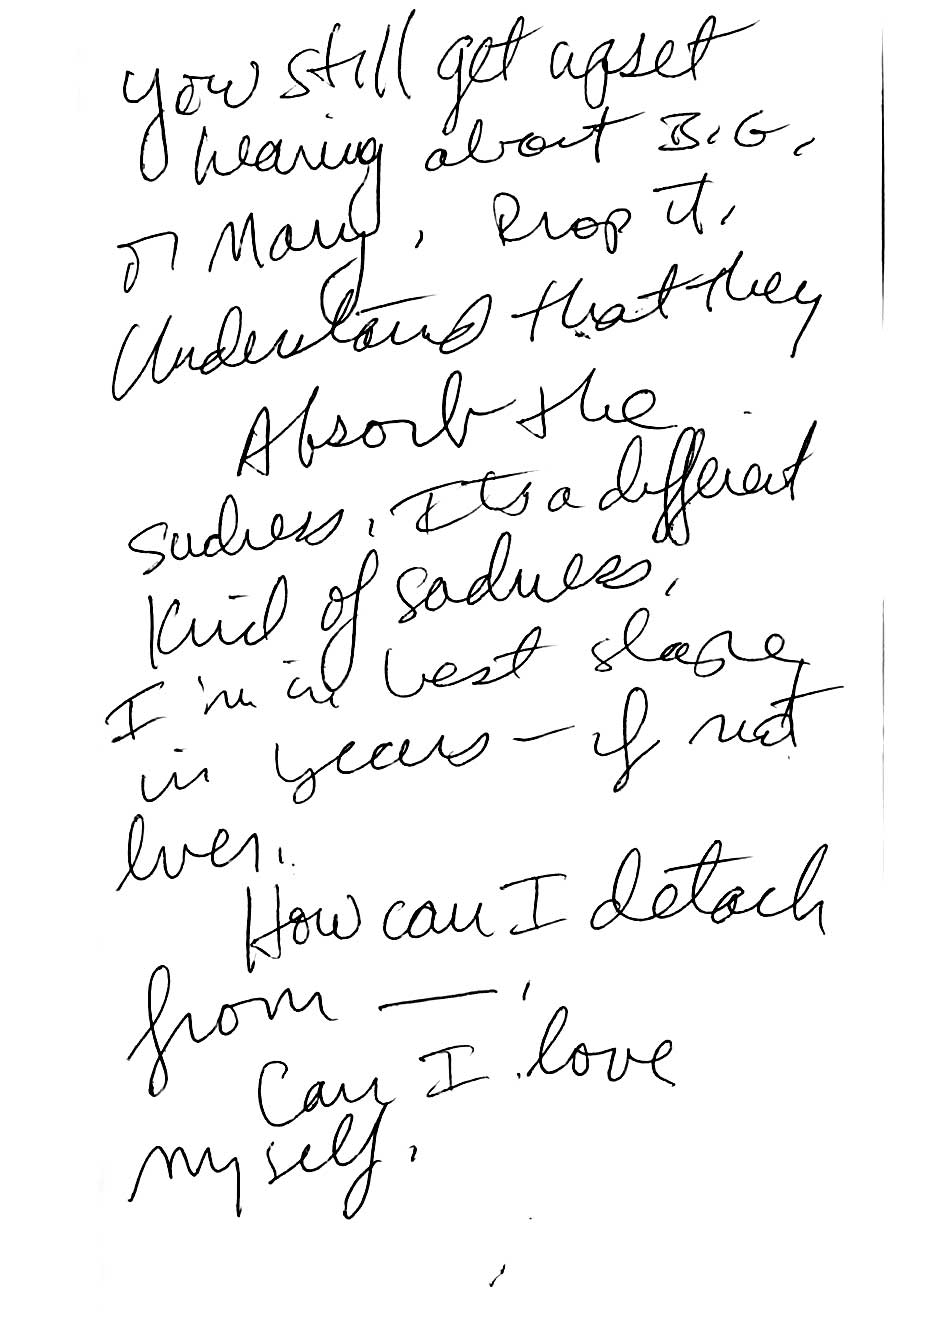 you still get upset
hearing about B.G.
or Mary. Drop it.
Understand that they
Absorb the
sadness. It's a different
kind of sadness.
I'm in best shape
in years - if not
ever.
How can I detach
from —.
Can I love
myself.